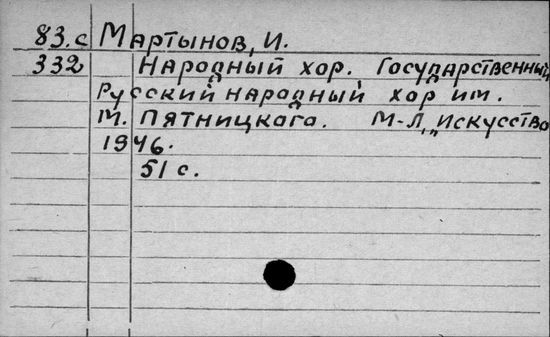 83.с Мартынов, И.
332 Народный хор. Государственный
Русский народный хор им.
М. Пятницкого. М-Л, „Искусство
1946.
51 с.